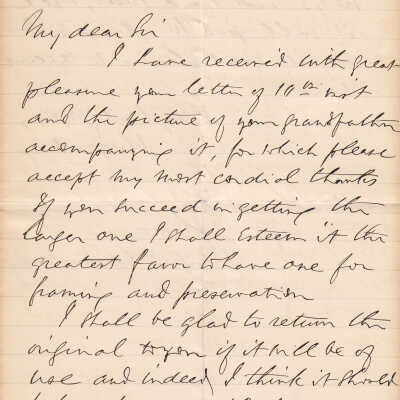 My dear Sir
I have received with great
pleasure your letter of 10th inst
and the picture of your grandfather
accompanying it, for which please
accept my most cordial thanks
If you succeed in getting the
larger one I shall esteem it the
greatest favor to have one for
framing and preservation
I shall be glad to return the
original to you if it will be of
use and indeed, I think it should